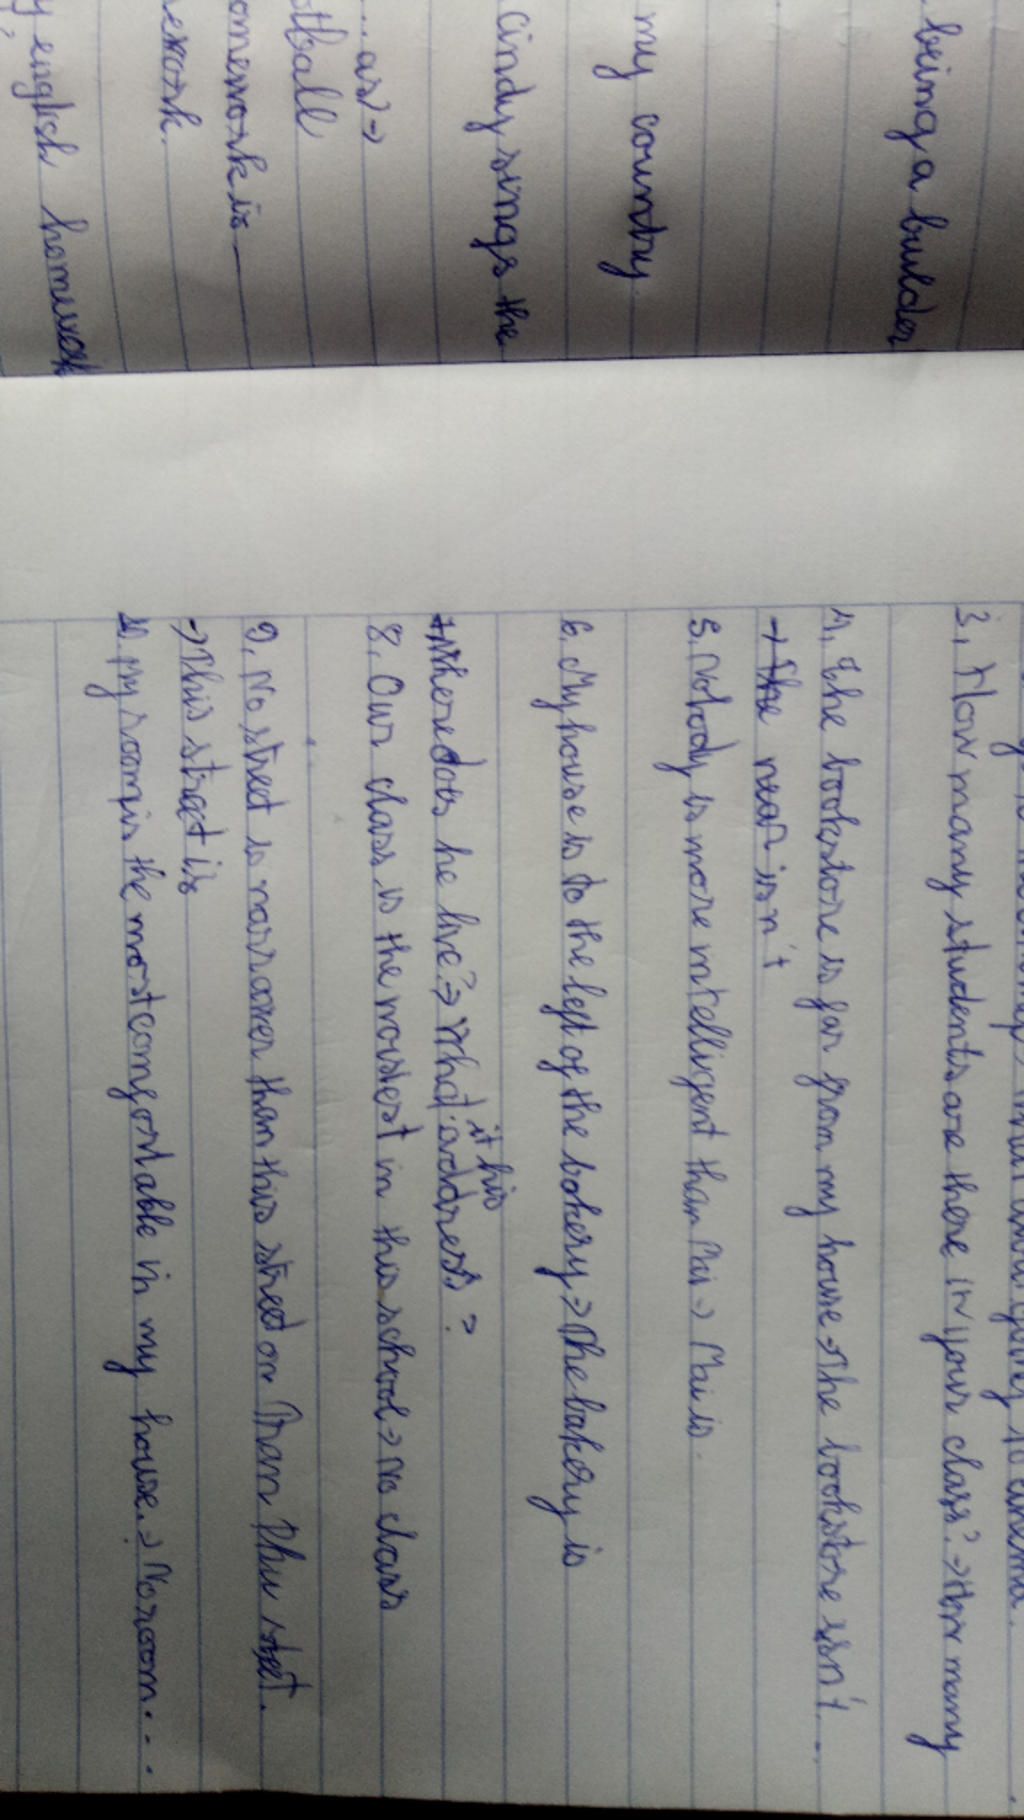 being a builder
my country.
cindy sings the
... as) ->
omework is
ework.
english homework
3, How many students are there in your class? -> How many
4, The bookstore is far from my house -> The bookstore isn't ...
-> The near isn't
5. Nobody is more intelligent than Mai -> Mai is.
6. My house is to the left of the bakery -> The bakery is
7, Where does he live? -> What it his address?
8. Our class is the noisiest in this school -> No class
9. No street is narrower than this street on Tran Phu street.
-> This street is
10. My room is the most comfortable in my house. -> No room...